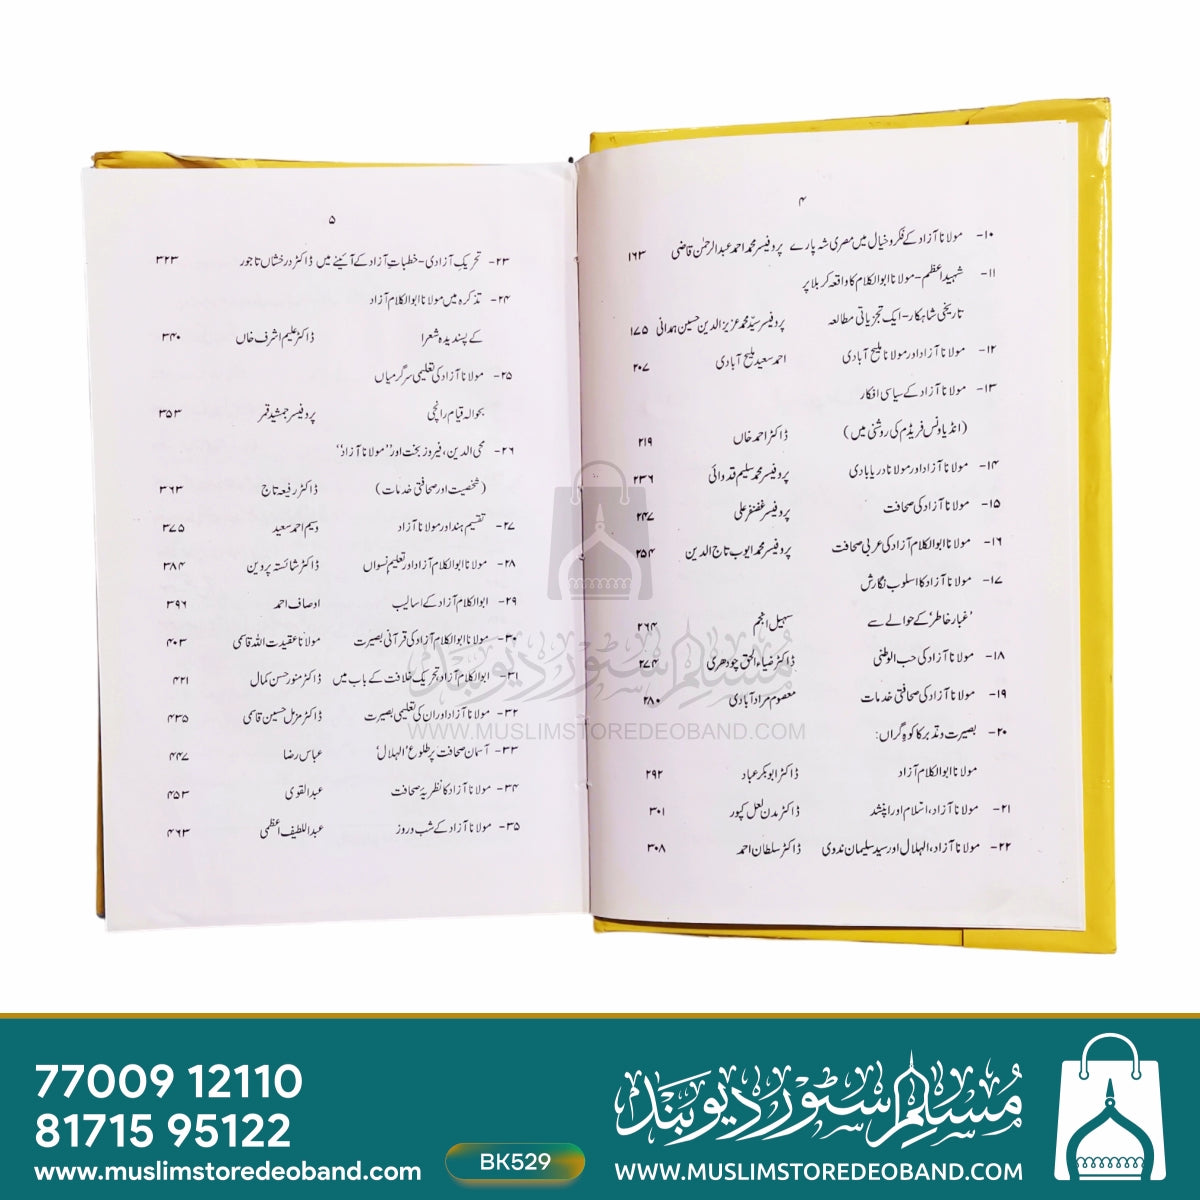 ۴
۱۰- مولانا آزاد کے فکر و خیال میں مصری شہ پارے پروفیسر محمد احمد عبدالرحمٰن قاضی ۱۶۳
۱۱- شہیدِ اعظم - مولانا ابوالکلام کا واقعہ کربلا پر
تاریخی شاہکار - ایک تجزیاتی مطالعہ پروفیسر سیّد محمد عزیز الدین حسین ہمدانی ۱۷۵
۱۲- مولانا آزاد اور مولانا ملیح آبادی احمد سعید ملیح آبادی ۲۰۷
۱۳- مولانا آزاد کے سیاسی افکار
(انڈیا ونس فریڈم کی روشنی میں) ڈاکٹر احمد خاں ۲۱۹
۱۴- مولانا آزاد اور مولانا دریابادی پروفیسر محمد سلیم قدوائی ۲۳۶
۱۵- مولانا آزاد کی صحافت پروفیسر غضنفر علی ۲۴۷
۱۶- مولانا ابوالکلام آزاد کی عربی صحافت پروفیسر محمد ایوب تاج الدین ۲۵۴
۱۷- مولانا آزاد کا اسلوب نگارش
'غبار خاطر' کے حوالے سے سہیل انجم ۲۶۴
۱۸- مولانا آزاد کی حب الوطنی ڈاکٹر ضیاء الحق چودھری ۲۷۴
۱۹- مولانا آزاد کی صحافتی خدمات معصوم مرادآبادی ۲۸۰
۲۰- بصیرت و تدبر کا کوہِ گراں:
مولانا ابوالکلام آزاد ڈاکٹر ابوبکر عباد ۲۹۲
۲۱- مولانا آزاد، اسلام اور اپنشد ڈاکٹر مدن لعل کپور ۳۰۱
۲۲- مولانا آزاد، الہلال اور سید سلیمان ندوی ڈاکٹر سلطان احمد ۳۰۸
۵
۲۳- تحریکِ آزادی - خطباتِ آزاد کے آئینے میں ڈاکٹر درخشاں تاجور ۳۲۳
۲۴- تذکرہ میں مولانا ابوالکلام آزاد
کے پسندیدہ شعرا ڈاکٹر علیم اشرف خاں ۳۴۰
۲۵- مولانا آزاد کی تعلیمی سرگرمیاں
بحوالہ قیام رانچی پروفیسر جمشید قمر ۳۵۳
۲۶- محی الدین، فیروز بخت اور "مولانا آزاد"
(شخصیت اور صحافتی خدمات) ڈاکٹر رفیعہ تاج ۳۶۳
۲۷- تقسیم ہند اور مولانا آزاد وسیم احمد سعید ۳۷۵
۲۸- مولانا ابوالکلام آزاد اور تعلیم نسواں ڈاکٹر شائستہ پروین ۳۸۴
۲۹- ابوالکلام آزاد کے اسالیب اوصاف احمد ۳۹۶
۳۰- مولانا ابوالکلام آزاد کی قرآنی بصیرت مولانا عقیدت اللہ قاسمی ۴۰۳
۳۱- ابوالکلام آزاد، تحریک خلافت کے باب میں ڈاکٹر منور حسن کمال ۴۲۱
۳۲- مولانا آزاد اور ان کی تعلیمی بصیرت ڈاکٹر مزمل حسین قاسمی ۴۳۵
۳۳- آسمان صحافت پر طلوع 'الہلال' عباس رضا ۴۴۷
۳۴- مولانا آزاد کا نظریۂ صحافت عبدالقوی ۴۵۳
۳۵- مولانا آزاد کے شب و روز عبداللطیف اعظمی ۴۶۳
مُسلم سٹور دیوبند
WWW.MUSLIMSTOREDEOBAND.COM
77009 12110
81715 95122
www.muslimstoredeoband.com
BK529
مُسلم سٹور دیوبند
WWW.MUSLIMSTOREDEOBAND.COM